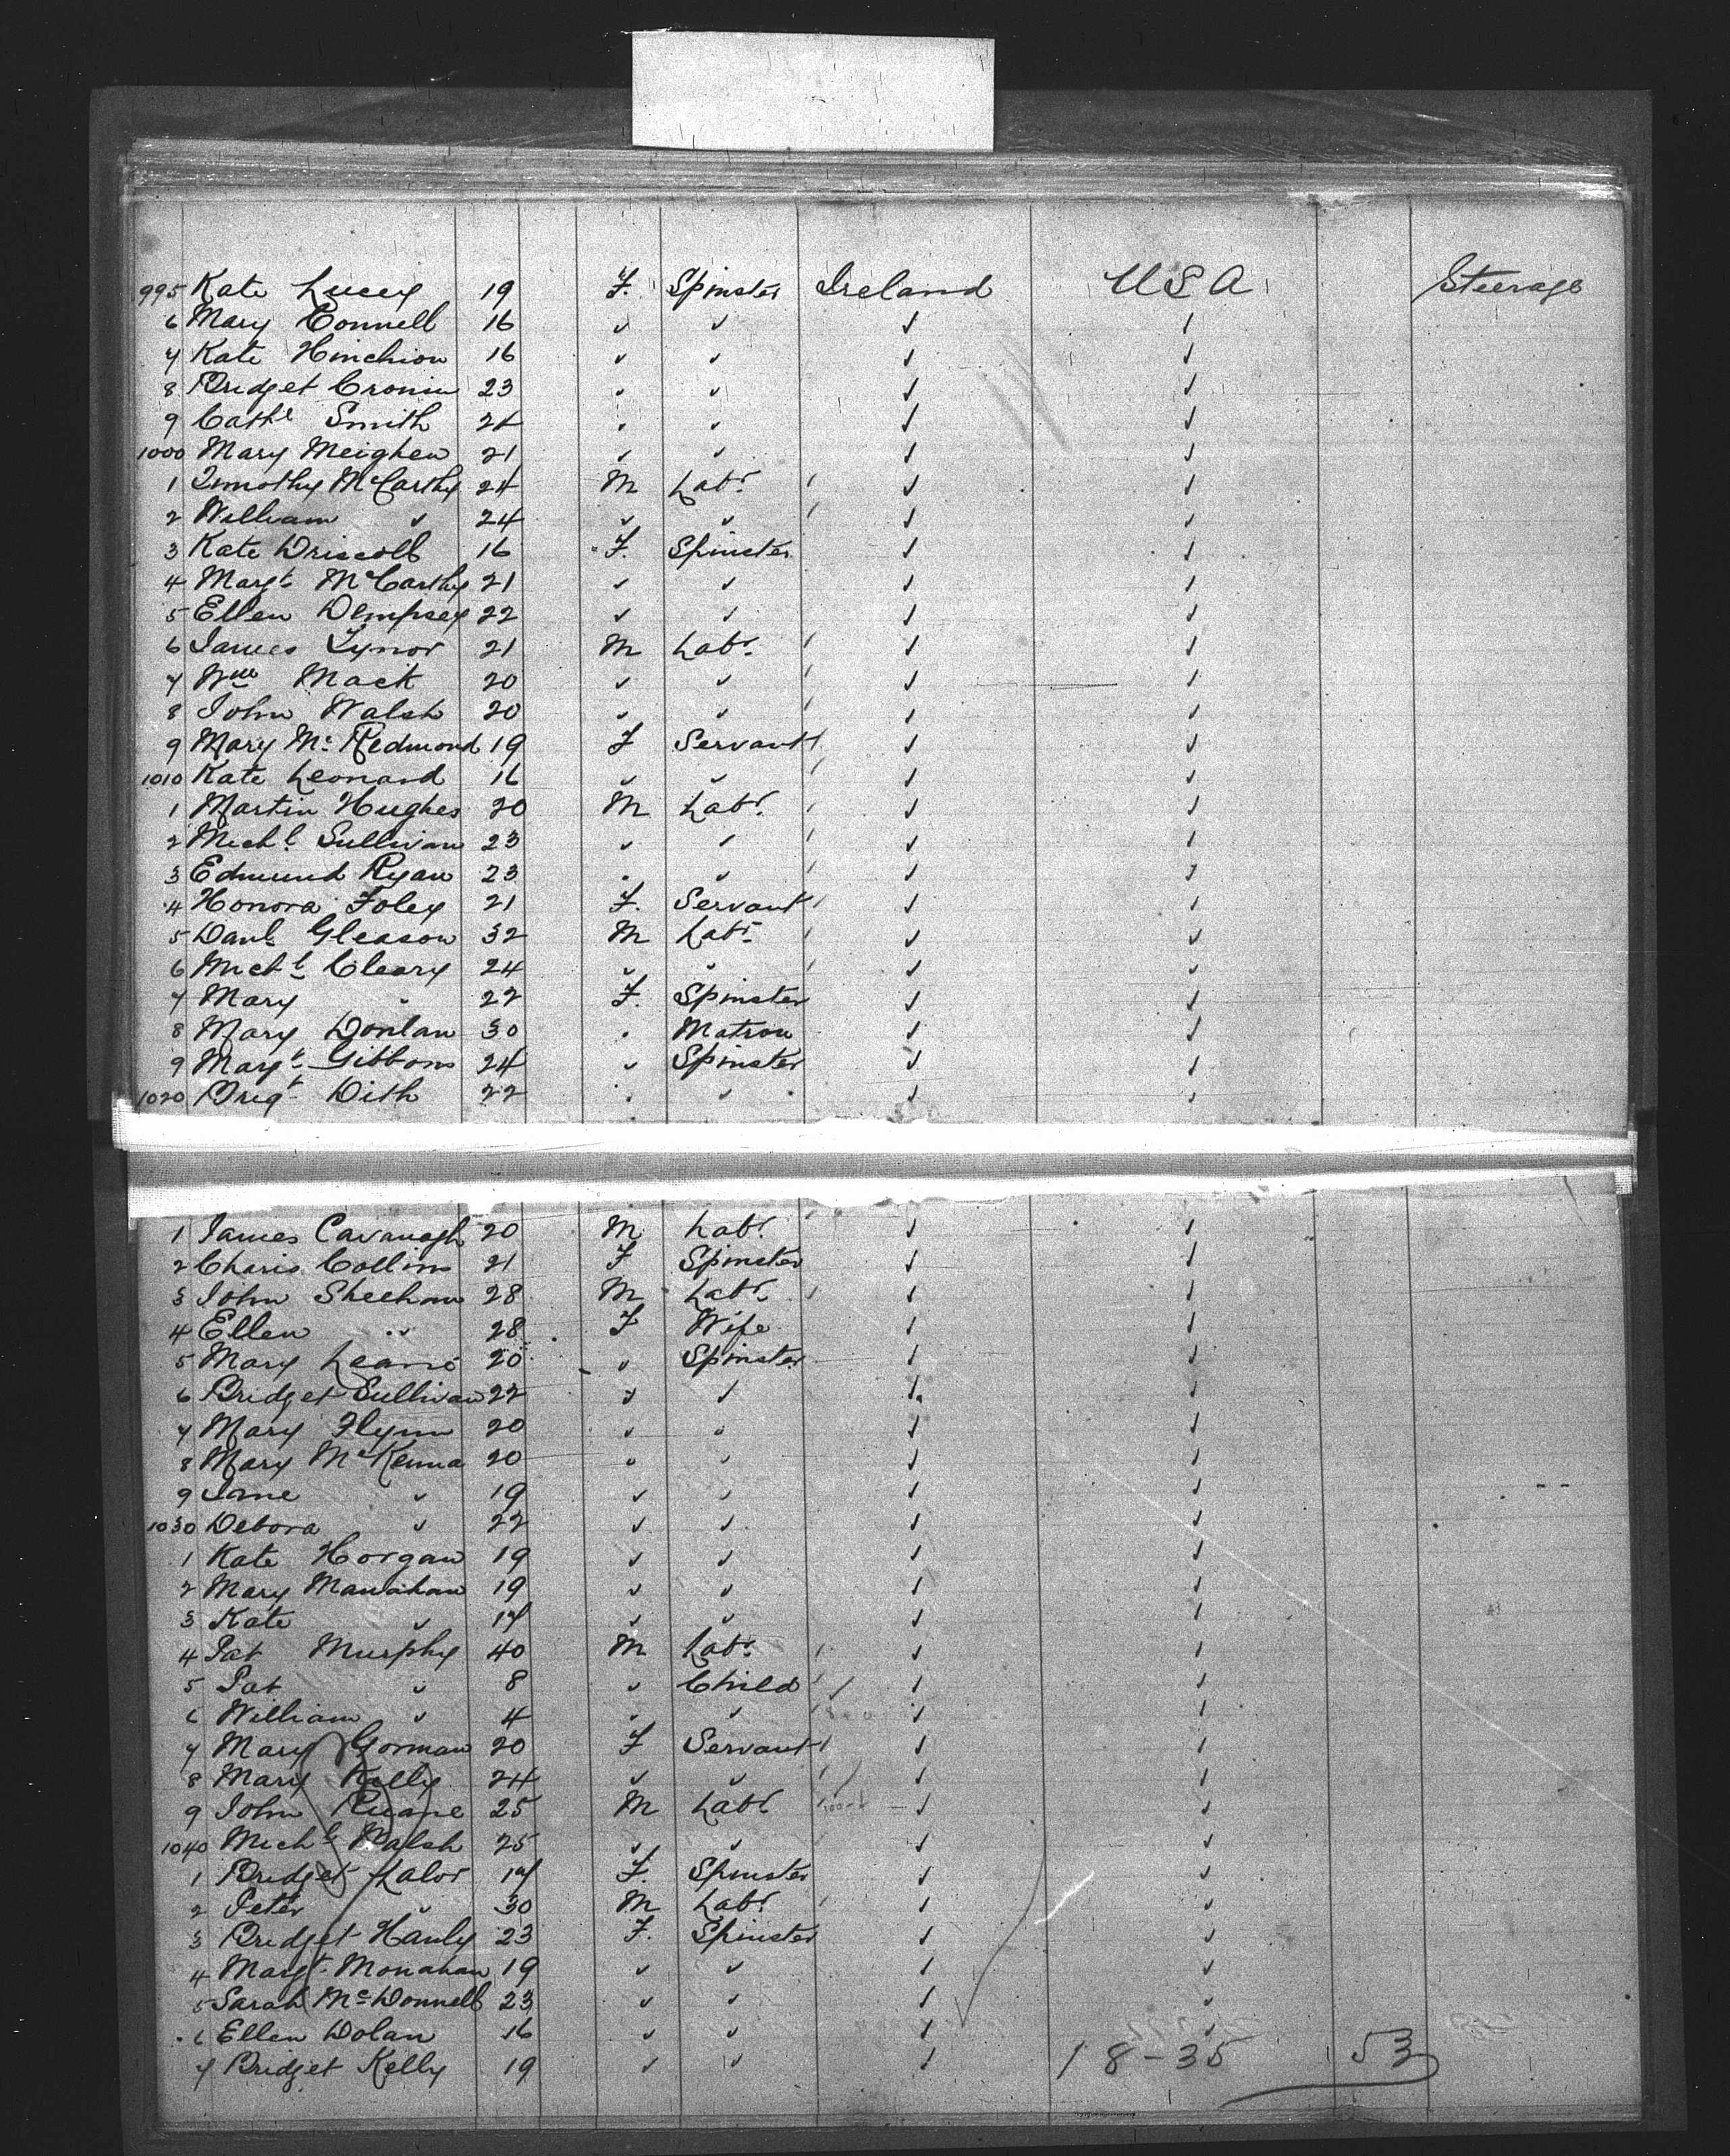 995 Kate Lucey 19 F. Spinster Ireland U S A Steerage
6 Mary Connell 16 " " " "
7 Kate Hinchion 16 " " " "
8 Bridget Cronin 23 " " " "
9 Cathe Smith 24 " " " "
1000 Mary Meighen 21 " " " "
1 Timothy McCarthy 24 M Labr. " "
2 William " 24 " " " "
3 Kate Driscoll 16 F. Spinster " "
4 Margt McCarthy 21 " " " "
5 Ellen Dempsey 22 " " " "
6 James Lynor 21 M Labr. " "
7 Wm Mack 20 " " " "
8 John Walsh 20 " " " "
9 Mary Mc Redmond 19 F Servant " "
1010 Kate Leonard 16 " " " "
1 Martin Hughes 20 M Labr. " "
2 Michl Sullivan 23 " " " "
3 Edmund Ryan 23 " " " "
4 Honora Foley 21 F. Servant " "
5 Danl Gleason 32 M Labr. " "
6 Michl Cleary 24 " " " "
7 Mary " 22 F. Spinster " "
8 Mary Donlan 30 " Matron " "
9 Margt Gibbons 24 " Spinster " "
1020 Brigt Dith 22 " " " "
1 James Cavanagh 20 M Labr. " "
2 Charis Collins 21 F Spinster " "
3 John Sheehan 28 M Labr. " "
4 Ellen " 28 F Wife " "
5 Mary 20 " Spinster " "
6 Bridget Sullivan 22 " " " "
7 Mary Flynn 20 " " " "
8 Mary McKenna 20 " " " "
9 Jane " 19 " " " "
1030 Debora " 22 " " " "
1 Kate Horgan 19 " " " "
2 Mary Manahan 19 " " " "
3 Kate " 17 " " " "
4 Pat Murphy 40 M Labr. " "
5 Pat " 8 " Child " "
6 William " 4 " " " "
7 Mary Gorman 20 F Servant " "
8 Mary Kelly 24 " " " "
9 John Ruane 25 M Labr " "
1040 Michl Walsh 25 " " " "
1 Bridget Lalor 17 F. Spinster " "
2 Peter " 30 M Labr. " "
3 Bridget Hanly 23 F. Spinster " "
4 Margt Monahan 19 " " " "
5 Sarah McDonnell 23 " " " "
6 Ellen Dolan 16 " " " "
7 Bridget Kelly 19 " " " 18-35 53